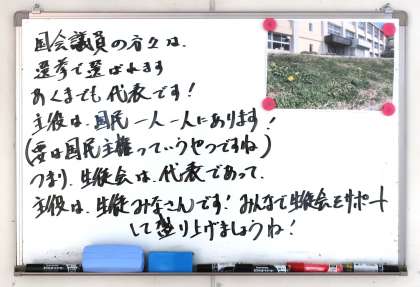 国会議員の方々は、
選挙で選ばれます
あくまでも代表です!
主役は、国民一人一人にあります!
(要は国民主権っていうやつですね)
つまり、生徒会は、代表であって、
主役は、生徒みなさんです!みんなで生徒会をサポート
して盛り上げましょうね!